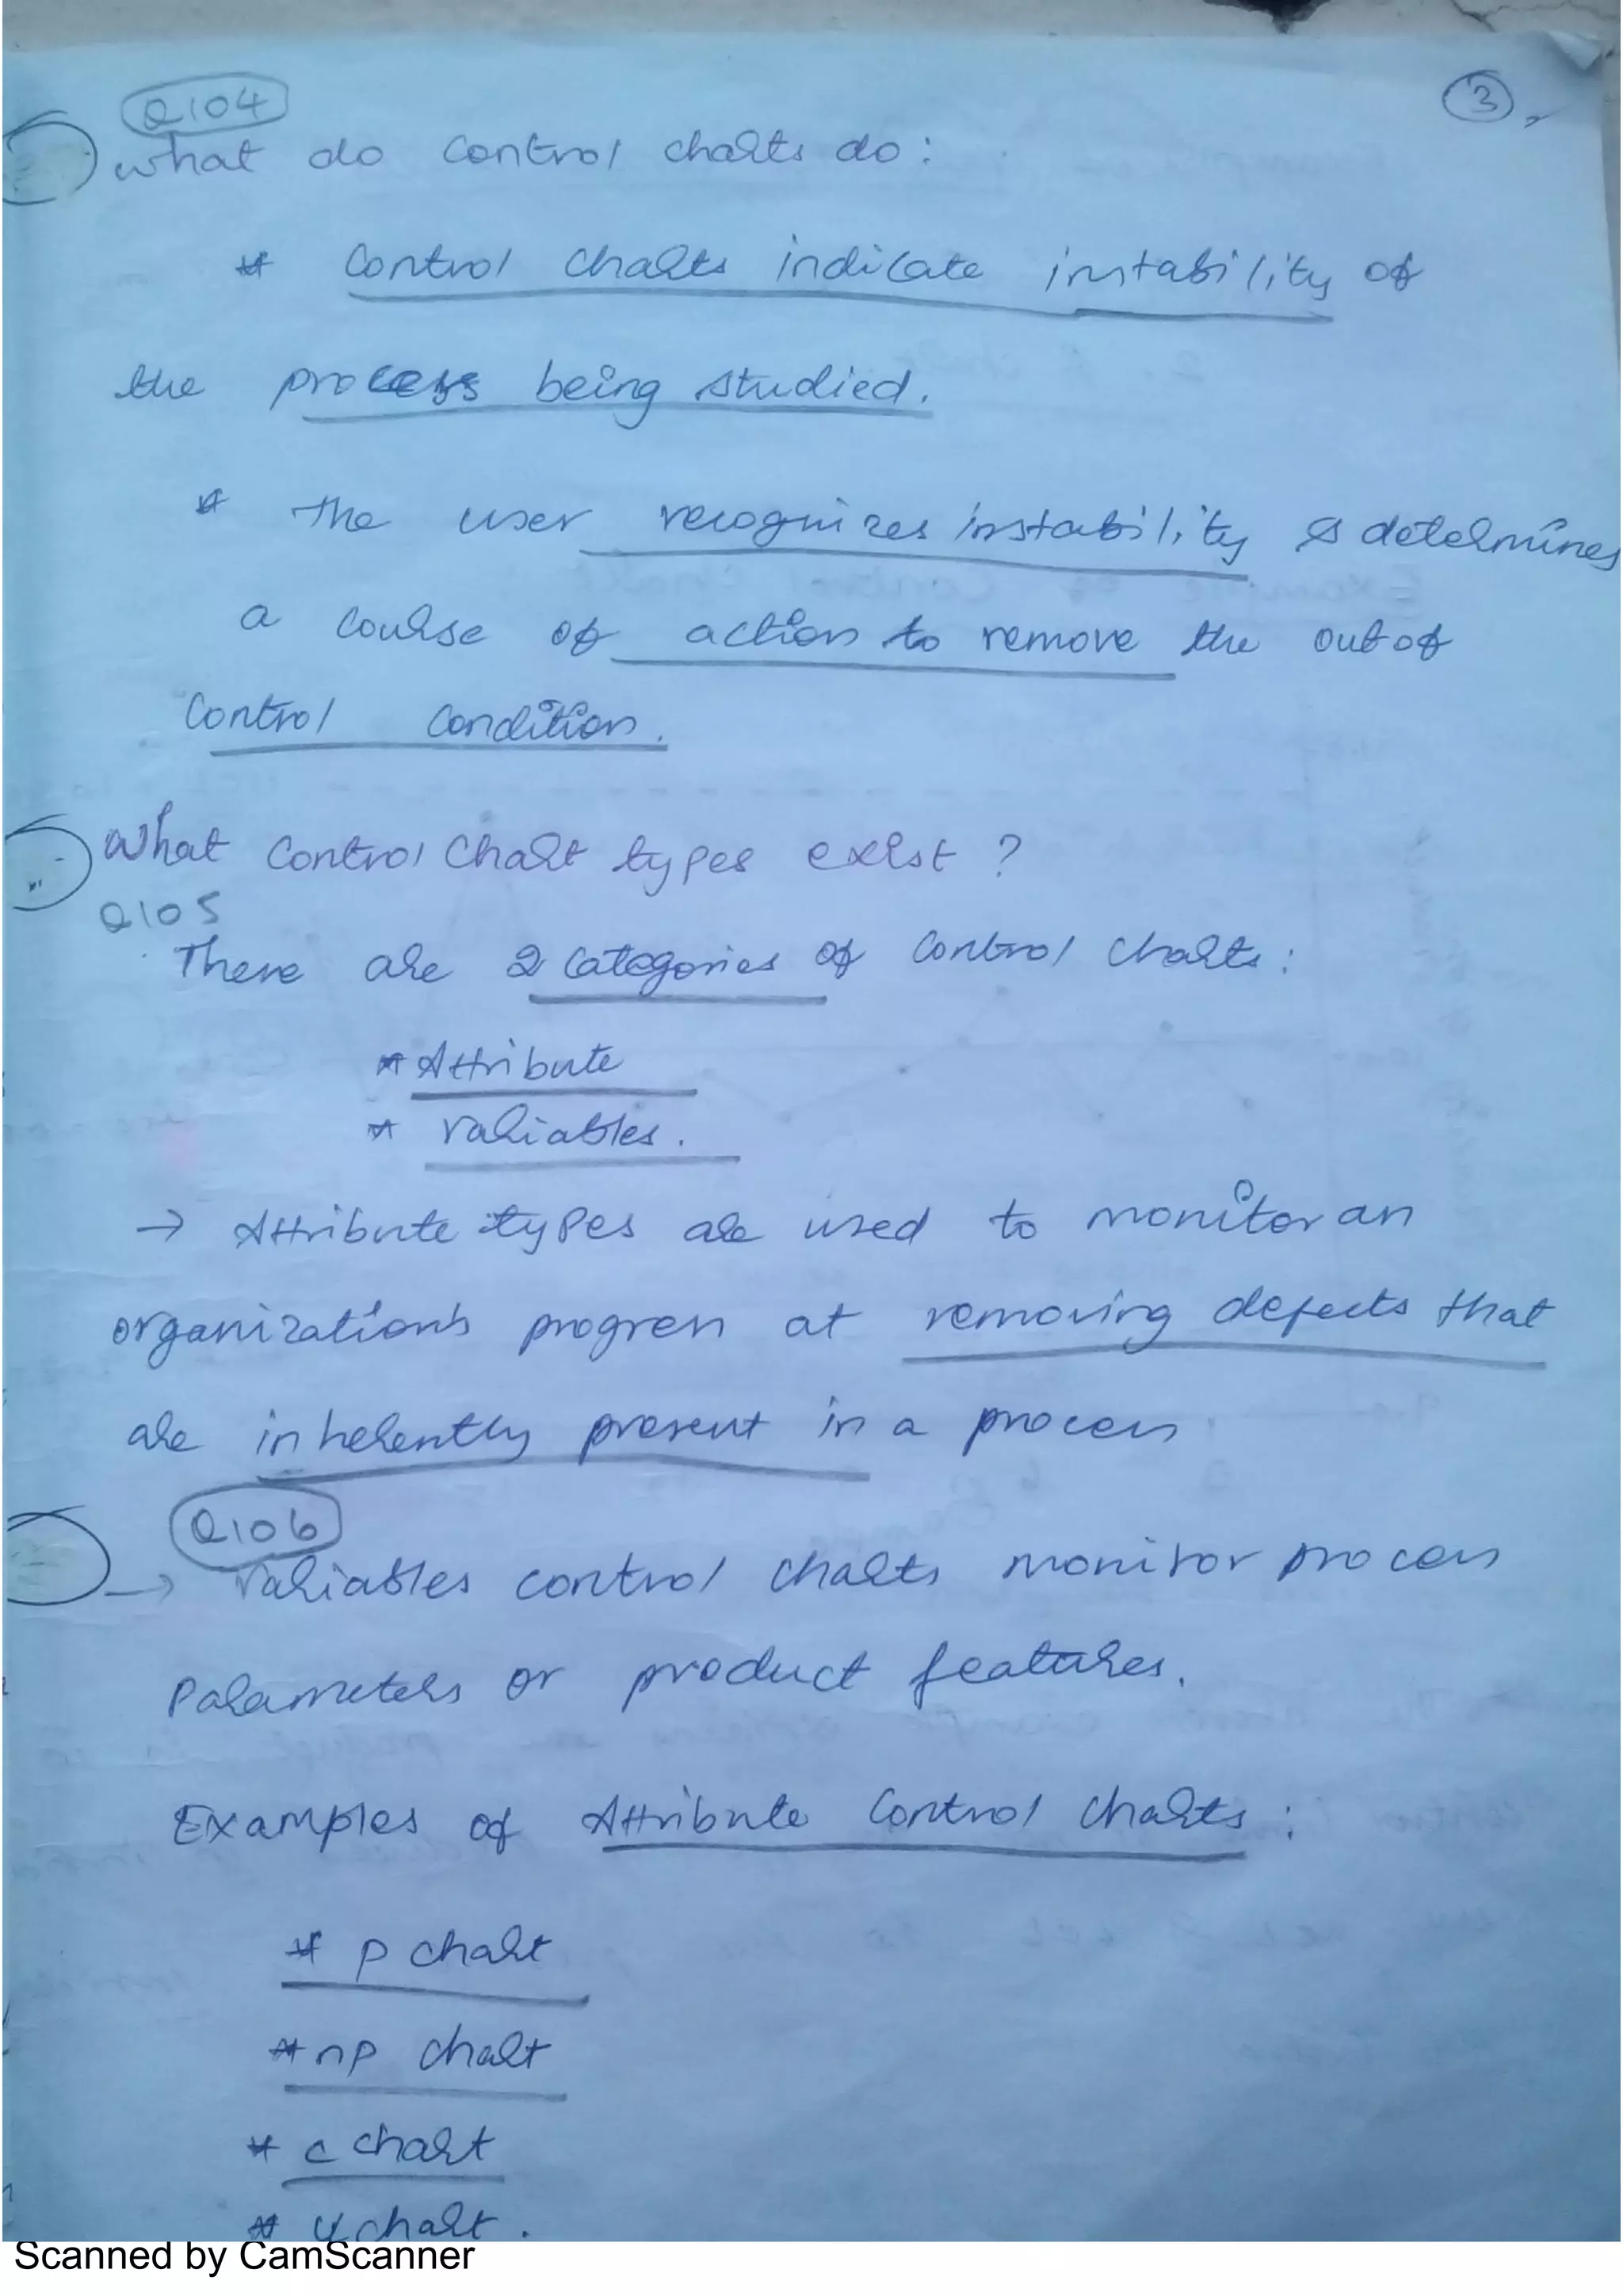 Q104
3
what do control charts do:
* Control charts indicate instability of
the process being studied.
* The user recognizes instability & determines
a course of action to remove the out of
control condition.
What control chart types exist ?
Q105
There are 2 categories of control charts:
* Attribute
* variables.
→ Attribute types are used to monitor an
organization's progress at removing defects that
are inherently present in a process
Q106
→ variables control charts monitor process
parameters or product features.
Examples of Attribute control charts:
* p chart
* np chart
* c chart
* u chart.
Scanned by CamScanner